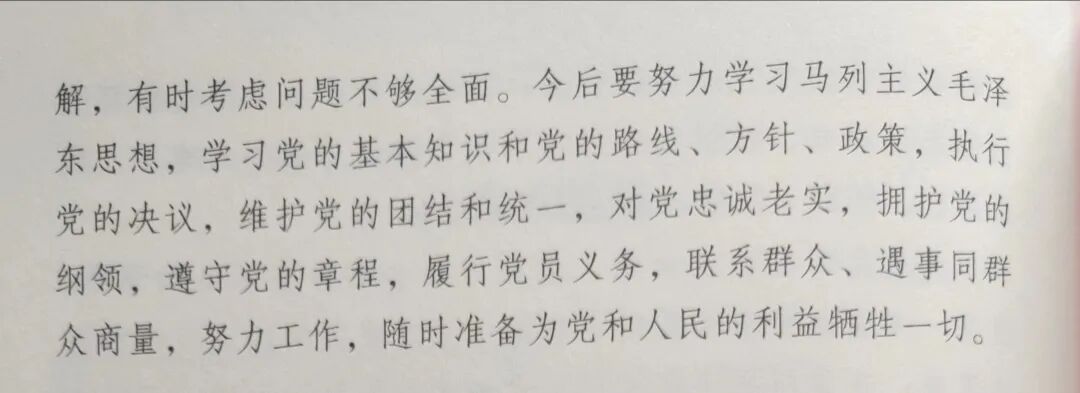 解，有时考虑问题不够全面。今后要努力学习马列主义毛泽
东思想，学习党的基本知识和党的路线、方针、政策，执行
党的决议，维护党的团结和统一，对党忠诚老实，拥护党的
纲领，遵守党的章程，履行党员义务，联系群众、遇事同群
众商量，努力工作，随时准备为党和人民的利益牺牲一切。